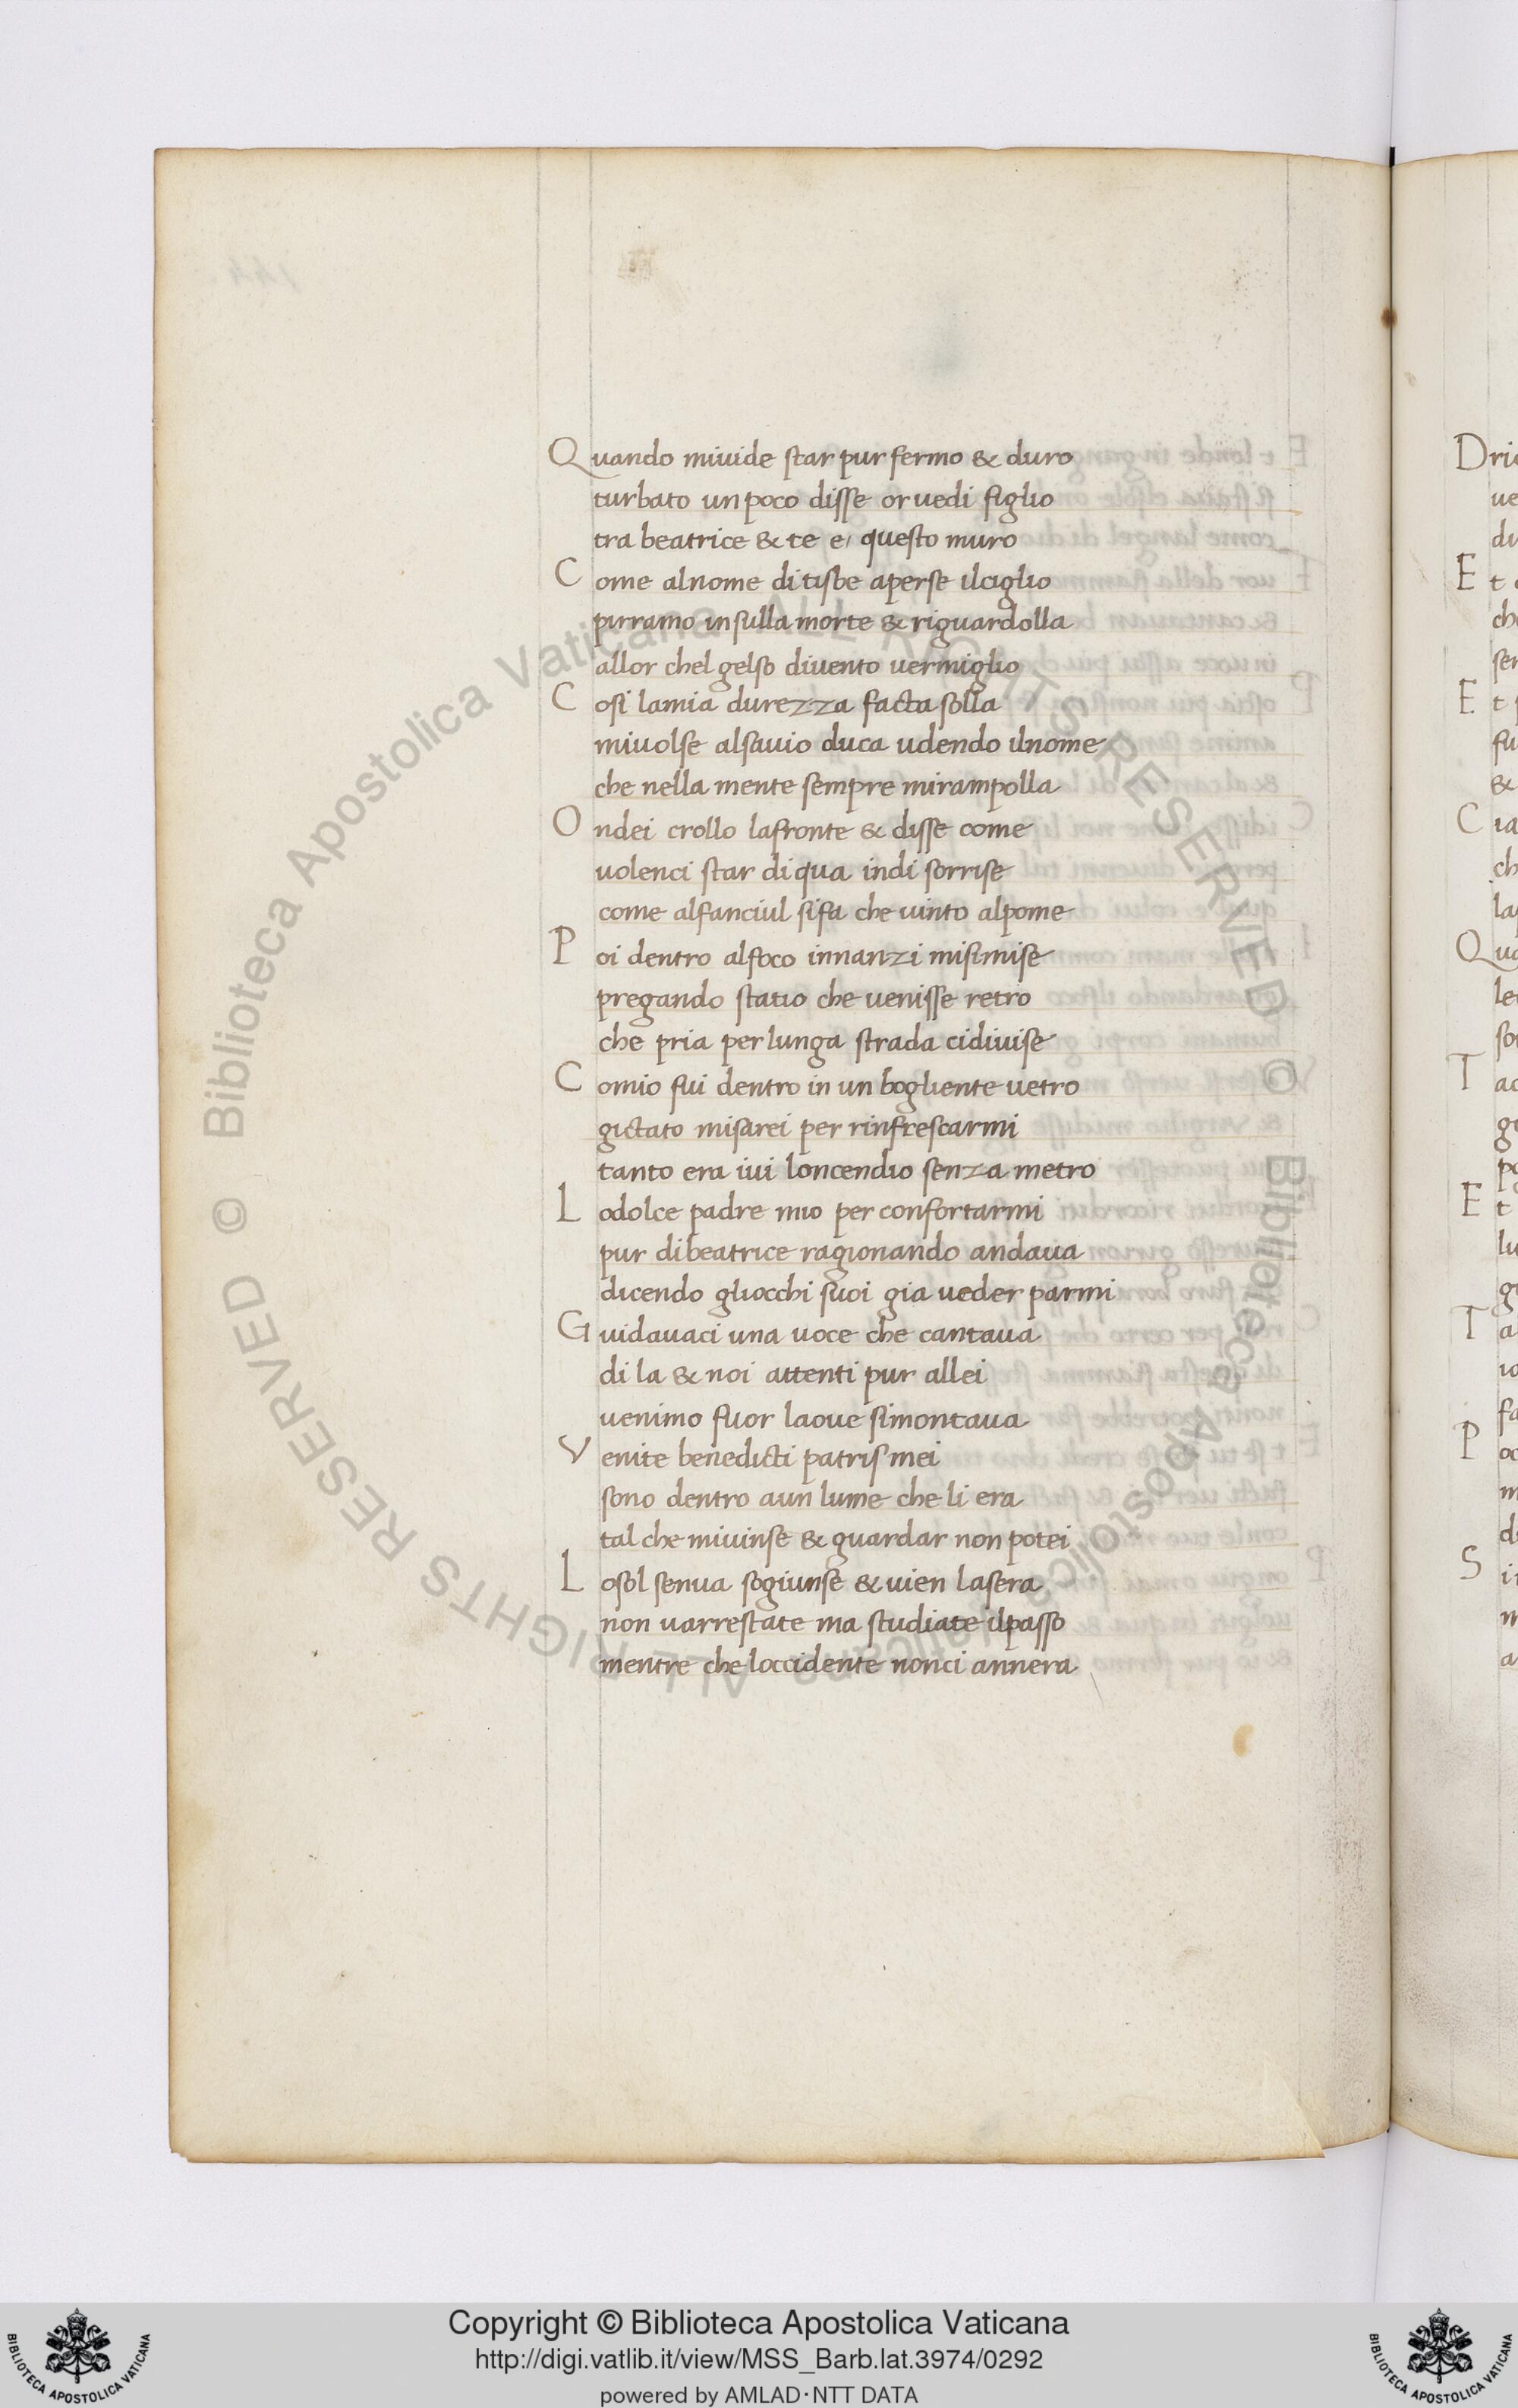 Quando mivide star pur fermo & duro
turbato un poco disse or vedi figlio
tra beatrice & te e, questo muro
Come alnome di tisbe aperse ilciglio
pirramo insulla morte & riguardolla
allor chel gelso divento vermiglio
Cosi lamia durezza facta solla
mivolse alsavio duca udendo ilnome
che nella mente sempre mirampolla
Ondei crollo lafronte & disse come
volenci star di qua indi sorrise
come alfanciul sifa che vinto alpome
Poi dentro alfoco innanzi misimise
pregando statio che venisse retro
che pria perlunga strada cidivise
Comio fui dentro in un bogliente vetro
gictato misarei per rinfrescarmi
tanto era ivi loncendio senza metro
Lodolce padre mio per confortarmi
pur dibeatrice ragionando andava
dicendo gliocchi suoi gia veder parmi
Guidavaci una voce che cantava
di la & noi attenti pur allei
venimo fuor laove simontava
Venite benedicti patris mei
sono dentro aun lume che li era
tal che mivinse & guardar non potei
Losol senva sogiunse & vien lasera
non varrestate ma studiate ilpasso
mentre che loccidente nonci annera
Copyright © Biblioteca Apostolica Vaticana
http://digi.vatlib.it/view/MSS_Barb.lat.3974/0292
powered by AMLAD·NTT DATA